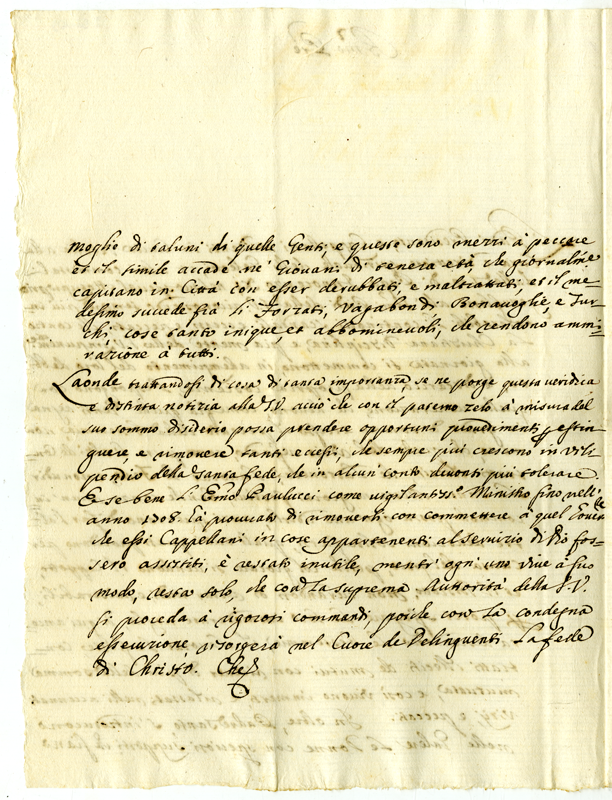 moglio di taluni di quelle Genti, e queste sono mezzi à peccare
et il simile accade nè Giovani di tenera età, che giornalme
capitano in Città con esser derubbati, e maltrattati, et il me
desimo succede frà li Forzati, Vagabondi Bonavoglie, e Tur
chi, cose tanto inique, et abbominevoli, che rendono ammi=
razione à tutti.
Laonde trattandosi di cosa di tanta importanza, se ne porge questa veridica
e distinta notizia alla S.V. acciò che con il paterno zelo à misura del
suo sommo disiderio possa prendere opportuni provedimenti p estin
guere e rimovere tanti eccessi, che sempre più crescono in vili
pendio della Santa fede, che in alcun conto deventi più tolerare
E se bene l' Emo Paulucci come vigilantiss.o Ministro sino nell'
anno 1708. hà procurato di rimoverli con commettere à quel
che essi Cappellani in cose appartenenti al servizio di Dio fos=
sero assistiti, è restato inutile, mentr' ogn' uno vive à suo
modo, resta solo, che con la suprema Autorità della S.V.
si proceda à rigorosi commandi, poiche con la condegna
essecuzione, risorgerà nel Cuore de Delinquenti La fede
di Christo. Che